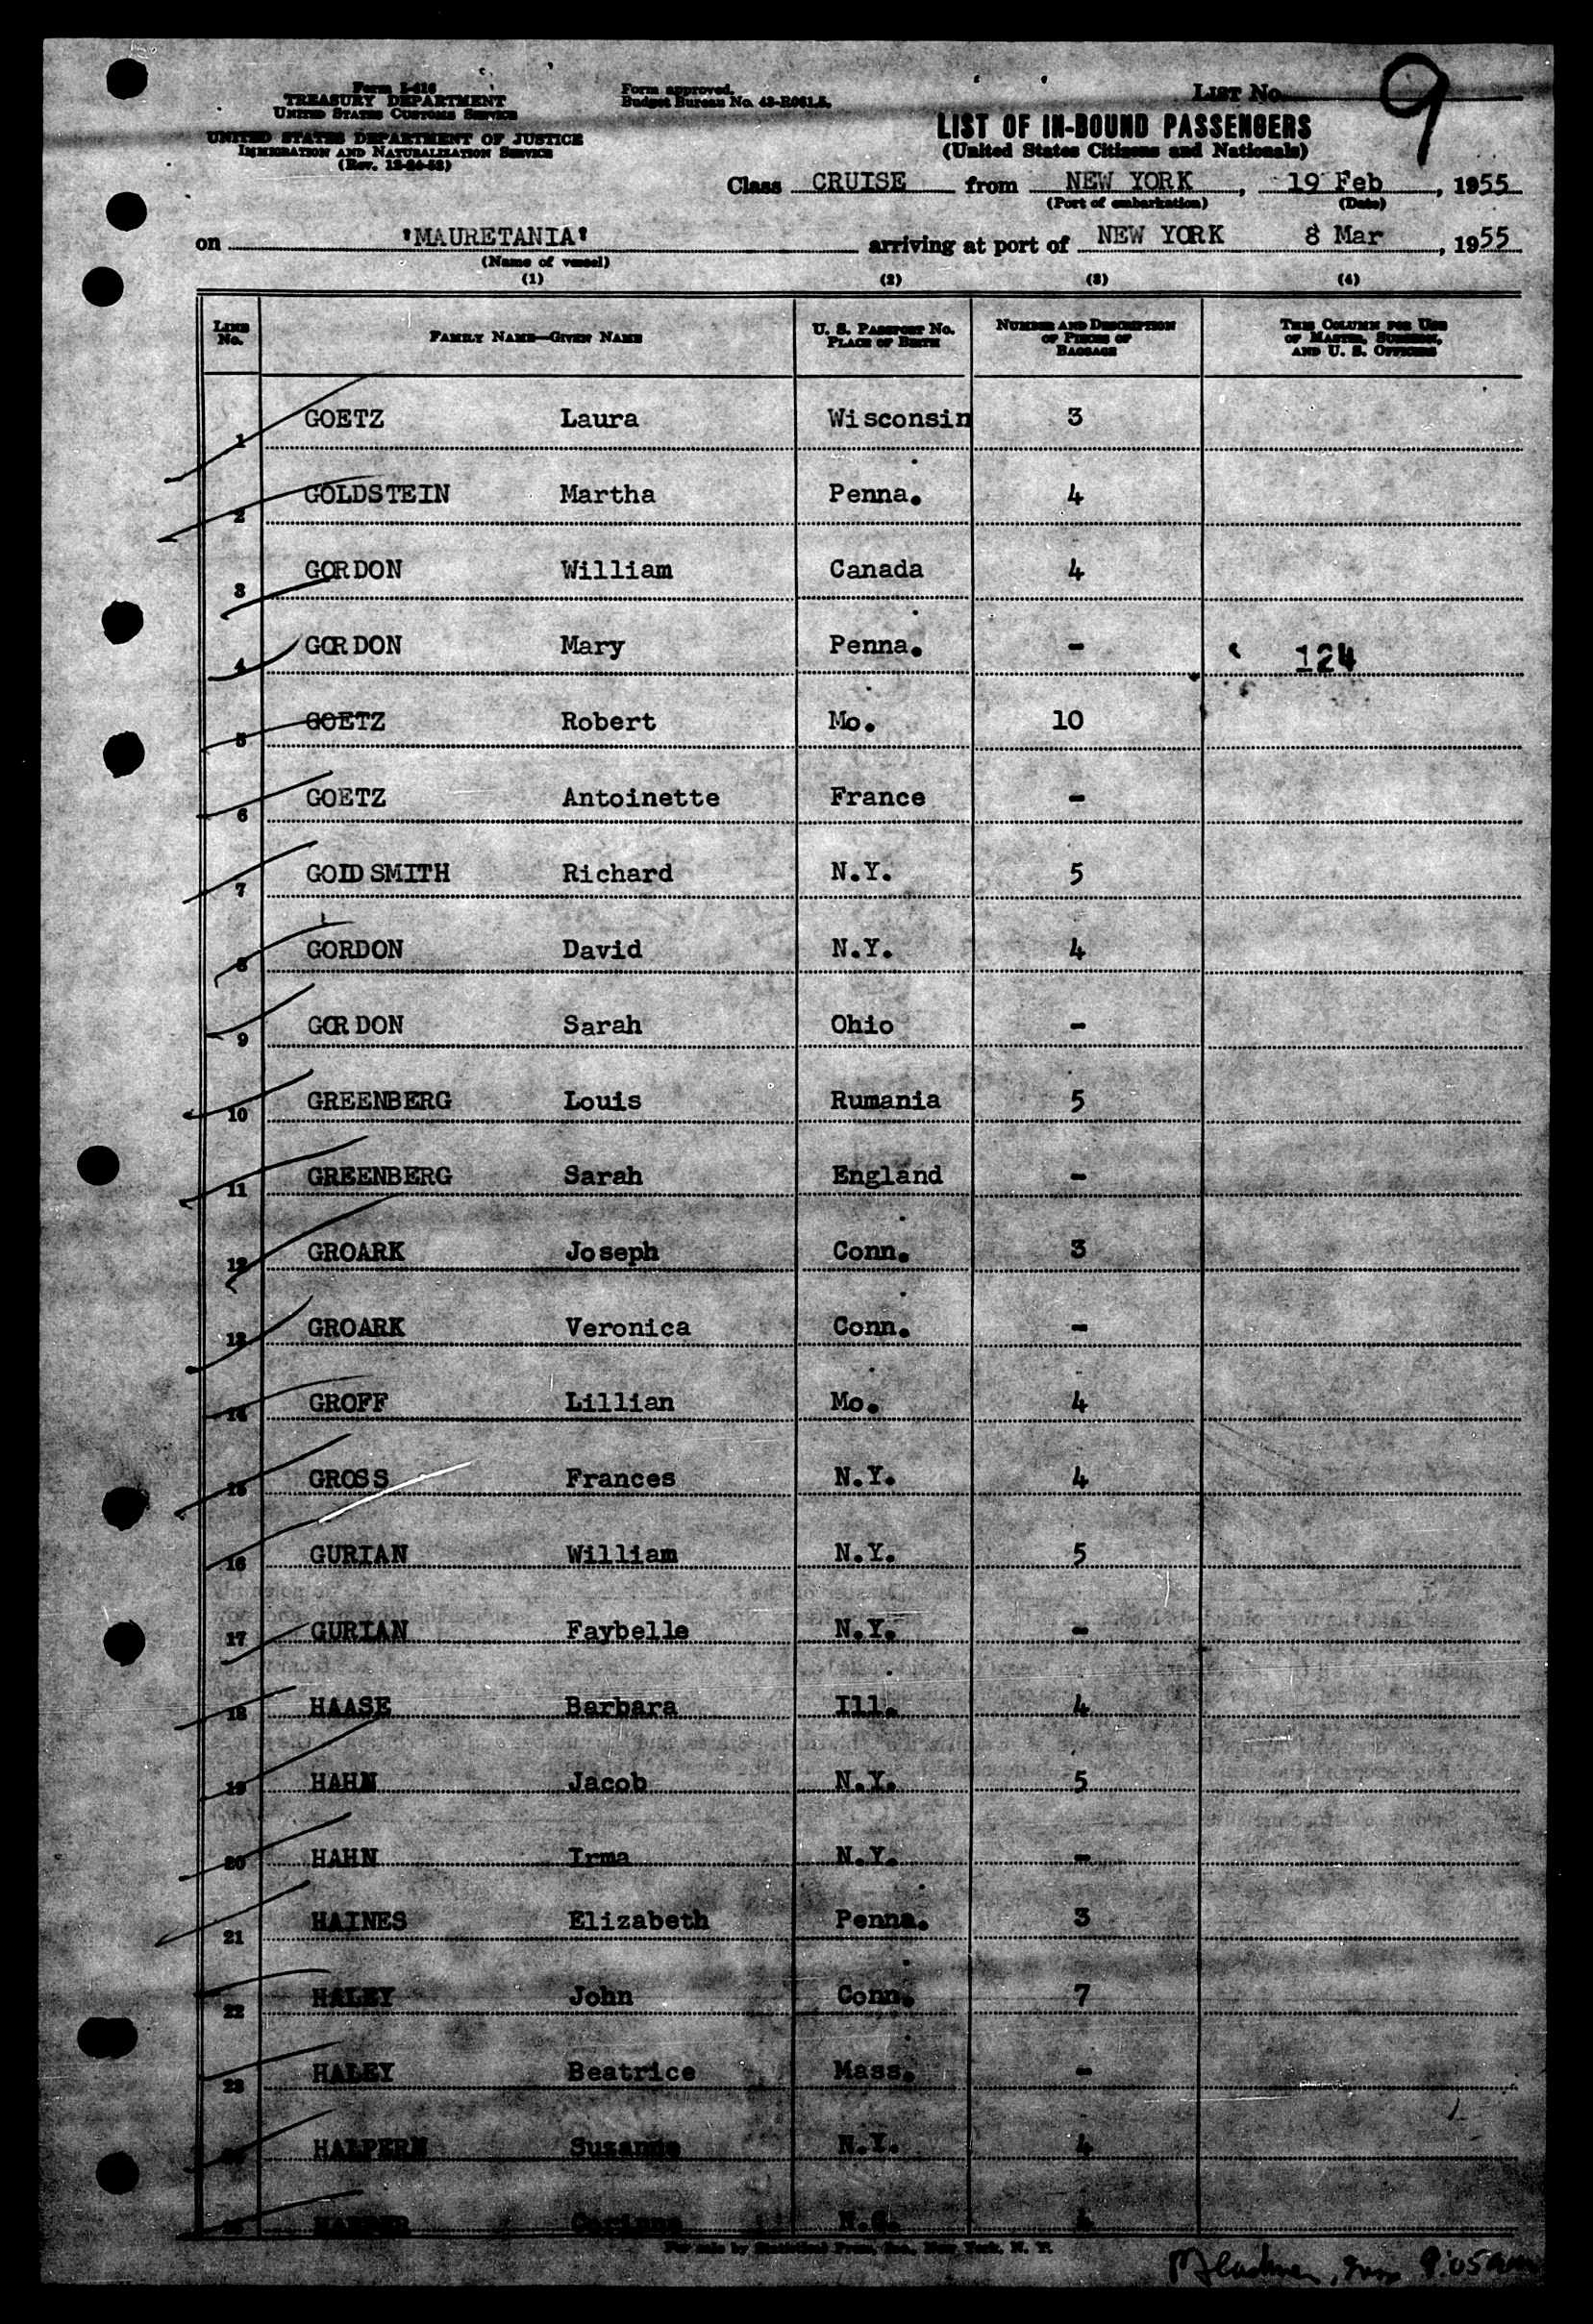 Form I-416
TREASURY DEPARTMENT
UNITED STATES CUSTOMS SERVICE
UNITED STATES DEPARTMENT OF JUSTICE
IMMIGRATION AND NATURALIZATION SERVICE
(Rev. 12-24-52)
Form approved.
Budget Bureau No. 43-R061.5.
LIST NO. 9
LIST OF IN-BOUND PASSENGERS
(United States Citizens and Nationals)
Class CRUISE from NEW YORK, 19 Feb, 1955
(Port of embarkation) (Date)
on "MAURETANIA" arriving at port of NEW YORK 8 Mar, 1955
(Name of vessel)
(1) (2) (3) (4)
LINE NO. FAMILY NAME—GIVEN NAME U. S. PASSPORT NO. PLACE OF BIRTH NUMBER AND DESCRIPTION OF PIECES OF BAGGAGE THIS COLUMN FOR USE OF MASTER, SURGEON, AND U. S. OFFICERS
1 GOETZ Laura Wisconsin 3
2 GOLDSTEIN Martha Penna. 4
3 GORDON William Canada 4
4 GORDON Mary Penna. - 124
5 GOETZ Robert Mo. 10
6 GOETZ Antoinette France -
7 GOLDSMITH Richard N.Y. 5
8 GORDON David N.Y. 4
9 GORDON Sarah Ohio -
10 GREENBERG Louis Rumania 5
11 GREENBERG Sarah England -
12 GROARK Joseph Conn. 3
13 GROARK Veronica Conn. -
14 GROFF Lillian Mo. 4
15 GROSS Frances N.Y. 4
16 GURIAN William N.Y. 5
17 GURIAN Faybelle N.Y. -
18 HAASE Barbara Ill. 4
19 HAHN Jacob N.Y. 5
20 HAHN Irma N.Y. -
21 HAINES Elizabeth Penna. 3
22 HALEY John Conn. 7
23 HALEY Beatrice Mass. -
HALPERN Suzanne N.Y. 4
HARPER 4
For sale by Statistical Press, Inc., New York, N. Y.
9:05 am